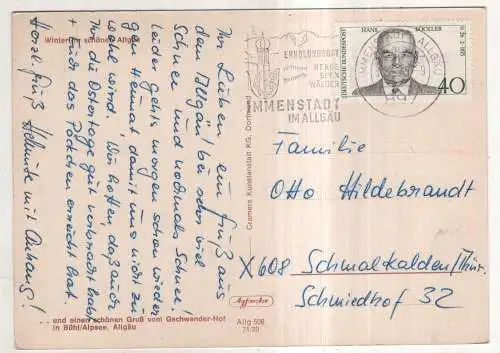 Winter im schönen Allgäu
Ihr Lieben, ein Gruß aus
dem Allgäu bei sehr viel
Schnee und nochmals Schnee!
Leider geht's morgen schon wieder
gen Heimat, damit uns nicht zu
wohl wird. Wir hoffen, daß auch
Ihr die Ostertage gut verbracht habt
+ Euch das Päckchen erreicht hat.
Herzl. Grüß Helmute mit Anhang!
... und einen schönen Gruß vom Gschwander-Hof
in Bühl/Alpsee, Allgäu
Cramers Kunstanstalt KG, Dortmund
Allg 508
71/20
ERHOLUNGSORT
BERGE
SEEN
WÄLDER
IMMENSTADT
IM ALLGÄU
IMMENSTADT
HANS BÖCKLER
DEUTSCHE BUNDESPOST
40
Familie
Otto Hildebrandt
X608 Schmalkalden/Thür.
Schmiedhof 32